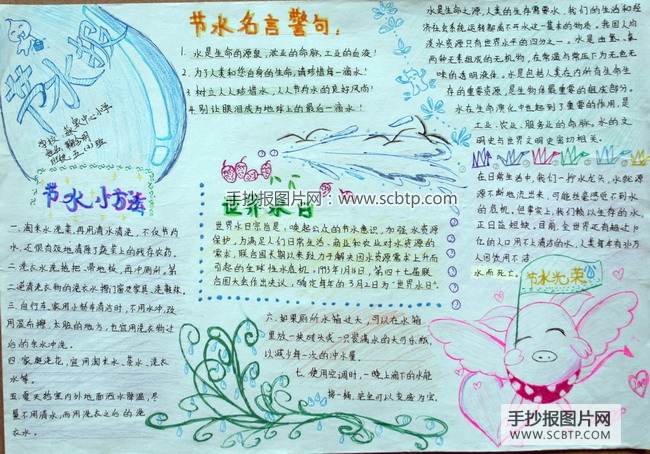 节水报
节水名言警句：
1. 水是生命的源泉，农业的命脉，工业的血液！
2. 为了人类和您自身的生命，请珍惜每一滴水！
3. 树立人人珍惜水，人人节约水的良好风尚！
4. 别让眼泪成为地球上的最后一滴水！
水是生命之源，人类的生存需要水，我们的生活和经
济社会系统运转都离不开水这一基本的物质。我国人均
淡水资源只有世界水平的四分之一。水是由氢、氧
两种元素组成的无机物，在常温与常压下为无色无
味的透明液体。水是包括人类在内所有生命生
存的重要资源，是生物体最重要的组成部分。
水在生命演化中也起到了重要的作用，是
工业、农业、服务业的命脉。水的文
明史与世界文明史密切相关。
在日常生活中，我们一拧水龙头，水就源
源不断地流出来，可能丝毫感觉不到水
的危机。但事实上，我们赖以生存的水，
正日益短缺。目前，全世界还有超过
亿的人口用不上清洁的水，人类每年有
万人因饮用不洁
水而死亡。
节水小方法
一、淘米水洗菜，再用清水清洗，不仅节约
水，还很有效地清除了蔬菜上的残存农药。
二、洗衣水洗拖把、带地板、再冲厕所。第
二道清洗衣物的洗衣水擦门窗及家具、洗鞋袜。
三、自行车、家用小轿车清洁时，不用水冲，改
用湿布擦，太脏的地方，也宜用洗衣物过
后的余水冲洗。
四、家庭浇花，宜用淘米水、茶水、洗衣
水等。
五、夏天热室内外地面洒水降温，尽
量不用清水，而用洗衣之后的洗
衣水。
手抄报图片网：www.scbtp.com
世界水日
世界水日宗旨是，唤起公众的节水意识，加强水资源
保护，为满足人们日常生活、商业和农业对水资源的
需求，联合国长期以来致力于解决因水资源需求上升而
引起的全球性水危机。1993年1月18日，第四十七届联
合国大会作出决议，确定每年的3月22日为“世界水日”。
六、如果厕所水箱过大，可以在水箱
里放一块砖头或一只装满水的大可乐瓶，
以减少每一次的冲水量。
七、使用空调时，一晚上滴下的水能
接一桶，完全可以变废为宝。
节水光荣
手抄报图片网
WWW.SCBTP.COM